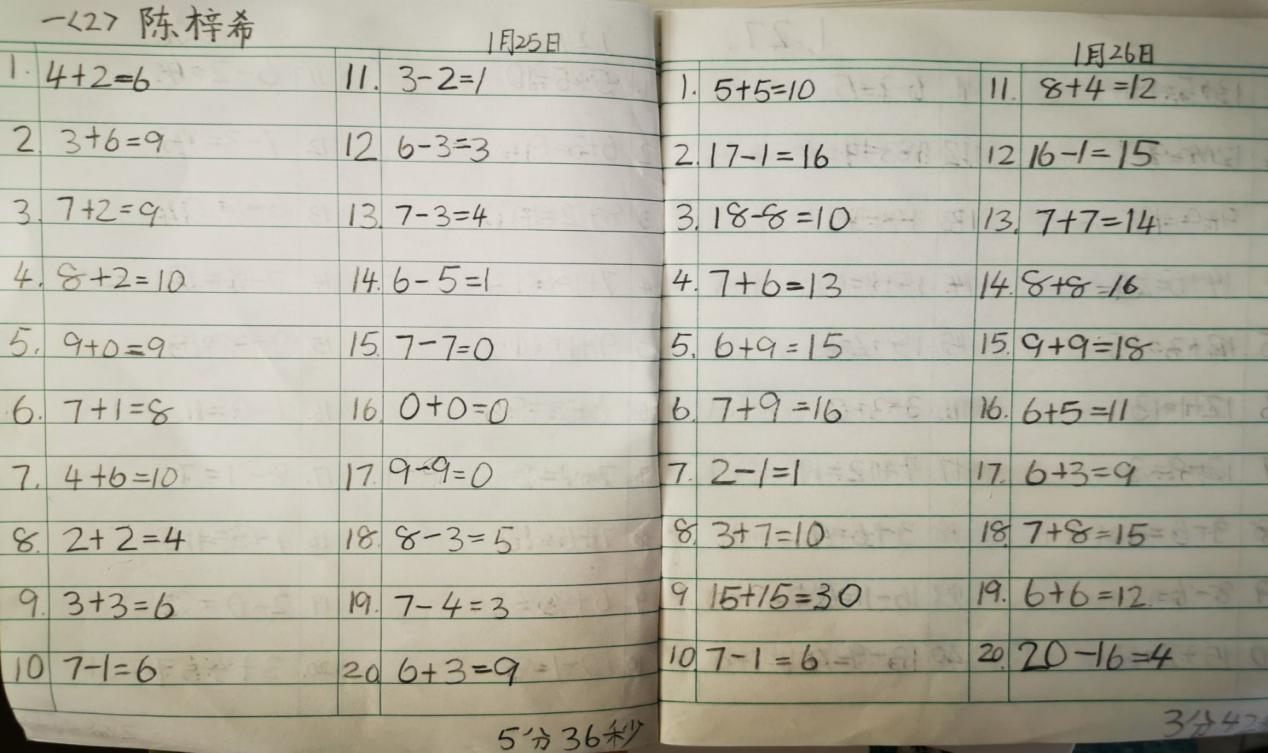 一〈2〉 陈梓希
1月25日
1. 4+2=6
2 3+6=9
3. 7+2=9
4. 8+2=10
5. 9+0=9
6. 7+1=8
7. 4+6=10
8. 2+2=4
9. 3+3=6
10 7-1=6
11. 3-2=1
12 6-3=3
13. 7-3=4
14. 6-5=1
15. 7-7=0
16. 0+0=0
17. 9-9=0
18. 8-3=5
19. 7-4=3
20 6+3=9
5分36秒
1月26日
1. 5+5=10
2. 17-1=16
3. 18-8=10
4. 7+6=13
5. 6+9=15
6. 7+9=16
7. 2-1=1
8. 3+7=10
9 15+15=30
10 7-1=6
11. 8+4=12
12 16-1=15
13. 7+7=14
14. 8+8=16
15. 9+9=18
16. 6+5=11
17. 6+3=9
18. 7+8=15
19. 6+6=12
20. 20-16=4
3分4